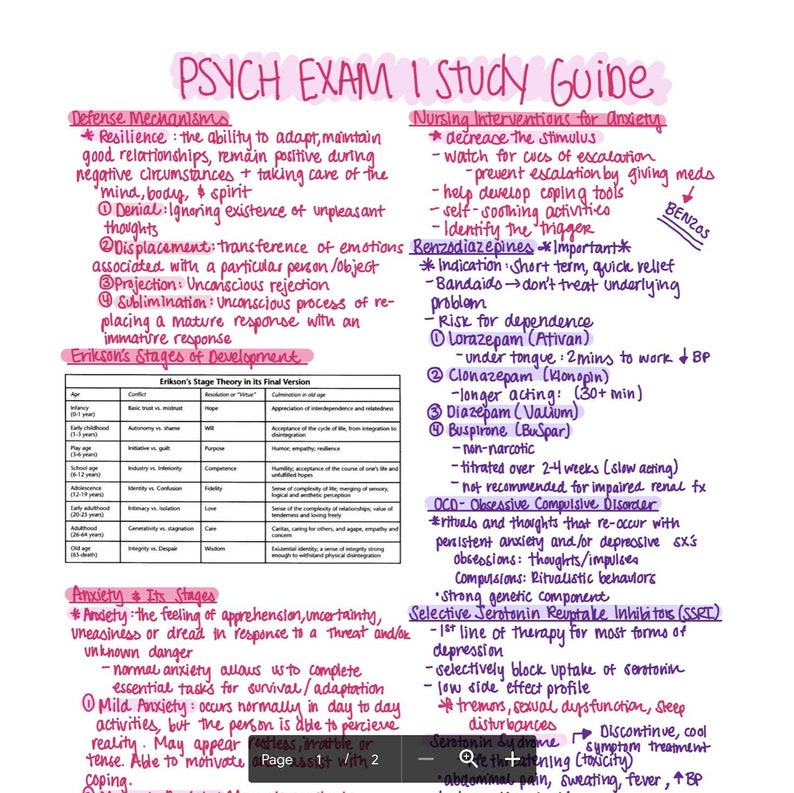 PSYCH EXAM 1 STUDY GUIDE
Defense Mechanisms
* Resilience: the ability to adapt, maintain
good relationships, remain positive during
negative circumstances + taking care of the
mind, body, & spirit
① Denial: Ignoring existence of unpleasant
thoughts
② Displacement: transference of emotions
associated with a particular person/object
③ Projection: Unconscious rejection
④ Sublimination: Unconscious process of re-
placing a mature response with an
immature response
Erikson's Stages of Development
Erikson's Stage Theory in its Final Version
Age Conflict Resolution or "Virtue" Culmination in old age
Infancy (0-1 year) Basic trust vs. mistrust Hope Appreciation of interdependence and relatedness
Early childhood (1-3 years) Autonomy vs. shame Will Acceptance of the cycle of life, from integration to disintegration
Play age (3-6 years) Initiative vs. guilt Purpose Humor; empathy; resilience
School age (6-12 years) Industry vs. Inferiority Competence Humility; acceptance of the course of one's life and unfulfilled hopes
Adolescence (12-19 years) Identity vs. Confusion Fidelity Sense of complexity of life; merging of sensory, logical and aesthetic perception
Early adulthood (20-25 years) Intimacy vs. Isolation Love Sense of the complexity of relationships; value of tenderness and loving freely
Adulthood (26-64 years) Generativity vs. stagnation Care Caritas, caring for others, and agape, empathy and concern
Old age (65-death) Integrity vs. Despair Wisdom Existential identity; a sense of integrity strong enough to withstand physical disintegration
Anxiety & Its Stages
* Anxiety: the feeling of apprehension, uncertainty,
uneasiness or dread in response to a threat and/or
unknown danger
- normal anxiety allows us to complete
essential tasks for survival/adaptation
① Mild Anxiety: occurs normally in day to day
activities, but the person is able to percieve
reality. May appear restless, irratible or
tense. Able to motivate and assist with
coping.
Nursing Interventions for Anxiety
* decrease the stimulus
- watch for cues of escalation
- prevent escalation by giving meds
→ BENZOS
- help develop coping tools
- self-soothing activities
- Identify the trigger
Benzodiazepines *Important*
* Indication: Short term, quick relief
- Bandaids → don't treat underlying
problem
- Risk for dependence
① Lorazepam (Ativan)
- under tongue: 2 mins to work ↓ BP
② Clonazepam (Klonopin)
- longer acting: (30+ min)
③ Diazepam (Valium)
④ Buspirone (BuSpar)
- non-narcotic
- titrated over 2-4 weeks (slow acting)
- not recommended for impaired renal fx
OCD- Obsessive Compulsive Disorder
*rituals and thoughts that re-occur with
persistent anxiety and/or depressive sx's
obsessions: thoughts/impulses
Compulsions: Ritualistic behaviors
• strong genetic component
Selective Serotonin Reuptake Inhibitors (SSRI)
- 1st line of therapy for most forms of
depression
- selectively block uptake of serotonin
- low side effect profile
* tremors, sexual dysfunction, sleep
disturbances
Serotonin Sydrome → Discontinue, cool
symptom treatment
threatening (toxicity)
• abdominal pain, sweating, fever, ↑ BP
Page 1 / 2 − +